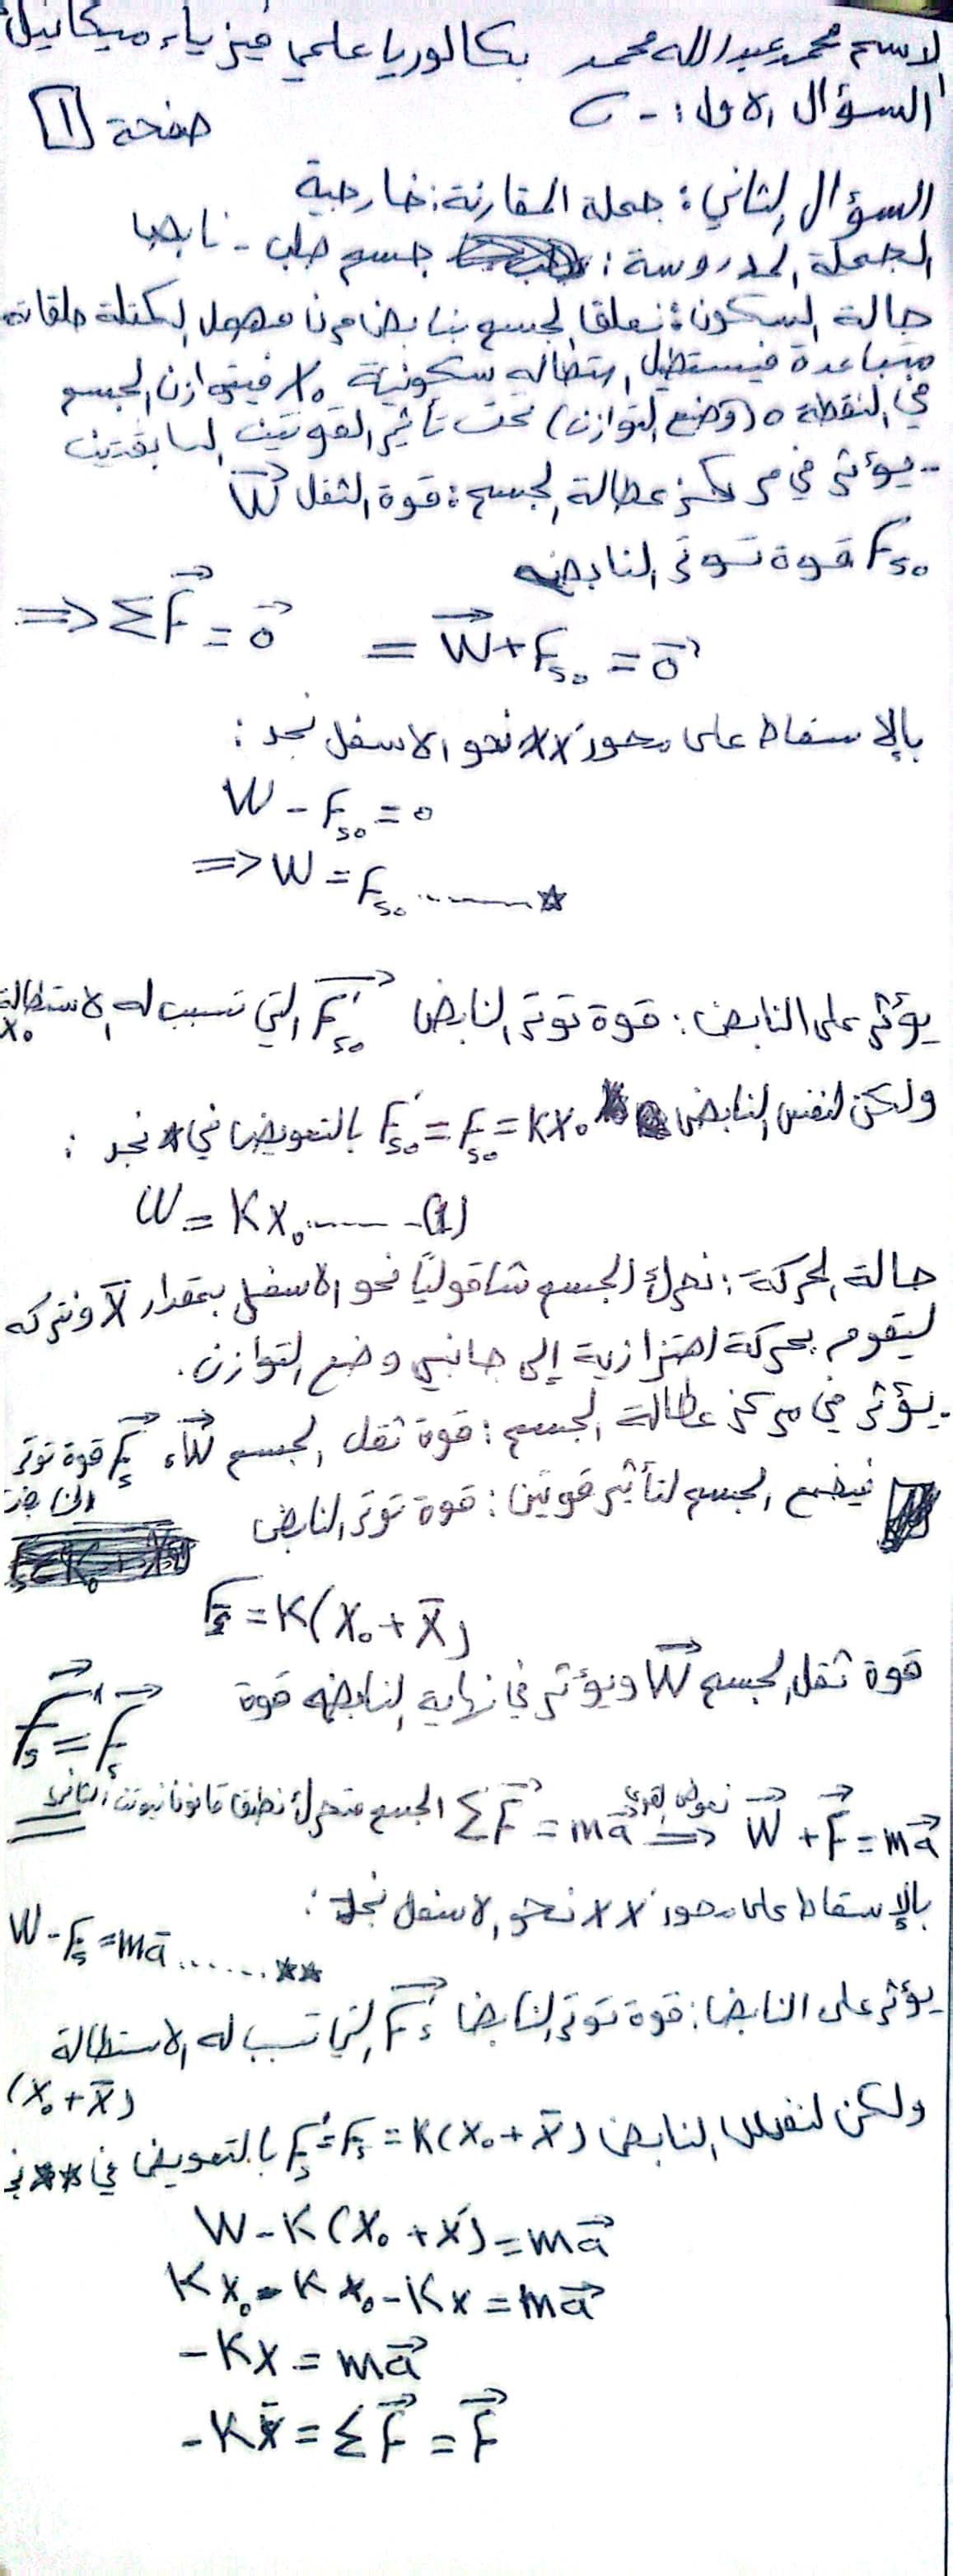 الاسم محمد عبدالله محمد بكالوريا علمي فيزياء ميكانيك
السؤال الاول: - C
صفحة 1
السؤال الثاني: جملة المقارنة: خارجية
الجملة المدروسة: جسم صلب - نابض
حالة السكون: نعلق الجسم بنابض مرن مهمل الكتلة حلقاته
متباعدة فيستطيل استطاله سكونية X₀ فيتوازن الجسم
في النقطة o (وضع التوازن) تحت تأثير القوتين السابقتين
- يؤثر في مركز عطالة الجسم: قوة الثقل W⃗
F_s₀ قوة توتر النابض
=> ΣF⃗ = 0⃗ = W⃗ + F_s₀ = 0⃗
بالإسقاط على محور x'x نحو الاسفل نجد:
W - F_s₀ = 0
=> W = F_s₀ ........☆
يؤثر على النابض: قوة توتر النابض F⃗'_s₀ التي تسبب له الاستطالة X₀
ولكن لنفس النابض F'_s₀ = F_s₀ = KX₀ بالتعويض في * نجد:
W = KX₀ ........(1)
حالة الحركة: نحرك الجسم شاقولياً نحو الاسفل بمقدار X̄ ونتركه
ليقوم بحركة اهتزازية إلى جانبي وضع التوازن.
- يؤثر في مركز عطالة الجسم: قوة ثقل الجسم W⃗، F⃗_s قوة توتر النابض
فيخضع الجسم لتأثير قوتين: قوة توتر النابض
F_s = K(X₀ + X̄)
قوة ثقل الجسم W⃗ ويؤثر في نهاية النابض قوة
F⃗'_s = F⃗_s
الجسم متحرك نطبق قانون نيوتن الثاني ΣF⃗ = ma⃗ => W⃗ + F⃗ = ma⃗
بالإسقاط على محور x'x نحو الاسفل نجد:
W - F_s = mā ........☆☆
يؤثر على النابض: قوة توتر النابض F⃗'_s التي تسبب له الاستطالة
(X₀ + X̄)
ولكن لنفس النابض F'_s = F_s = K(X₀ + X̄) بالتعويض في ** نجد
W - K(X₀ + X) = ma⃗
KX₀ - KX₀ - KX = ma⃗
-KX = ma⃗
-KX̄ = ΣF⃗ = F⃗